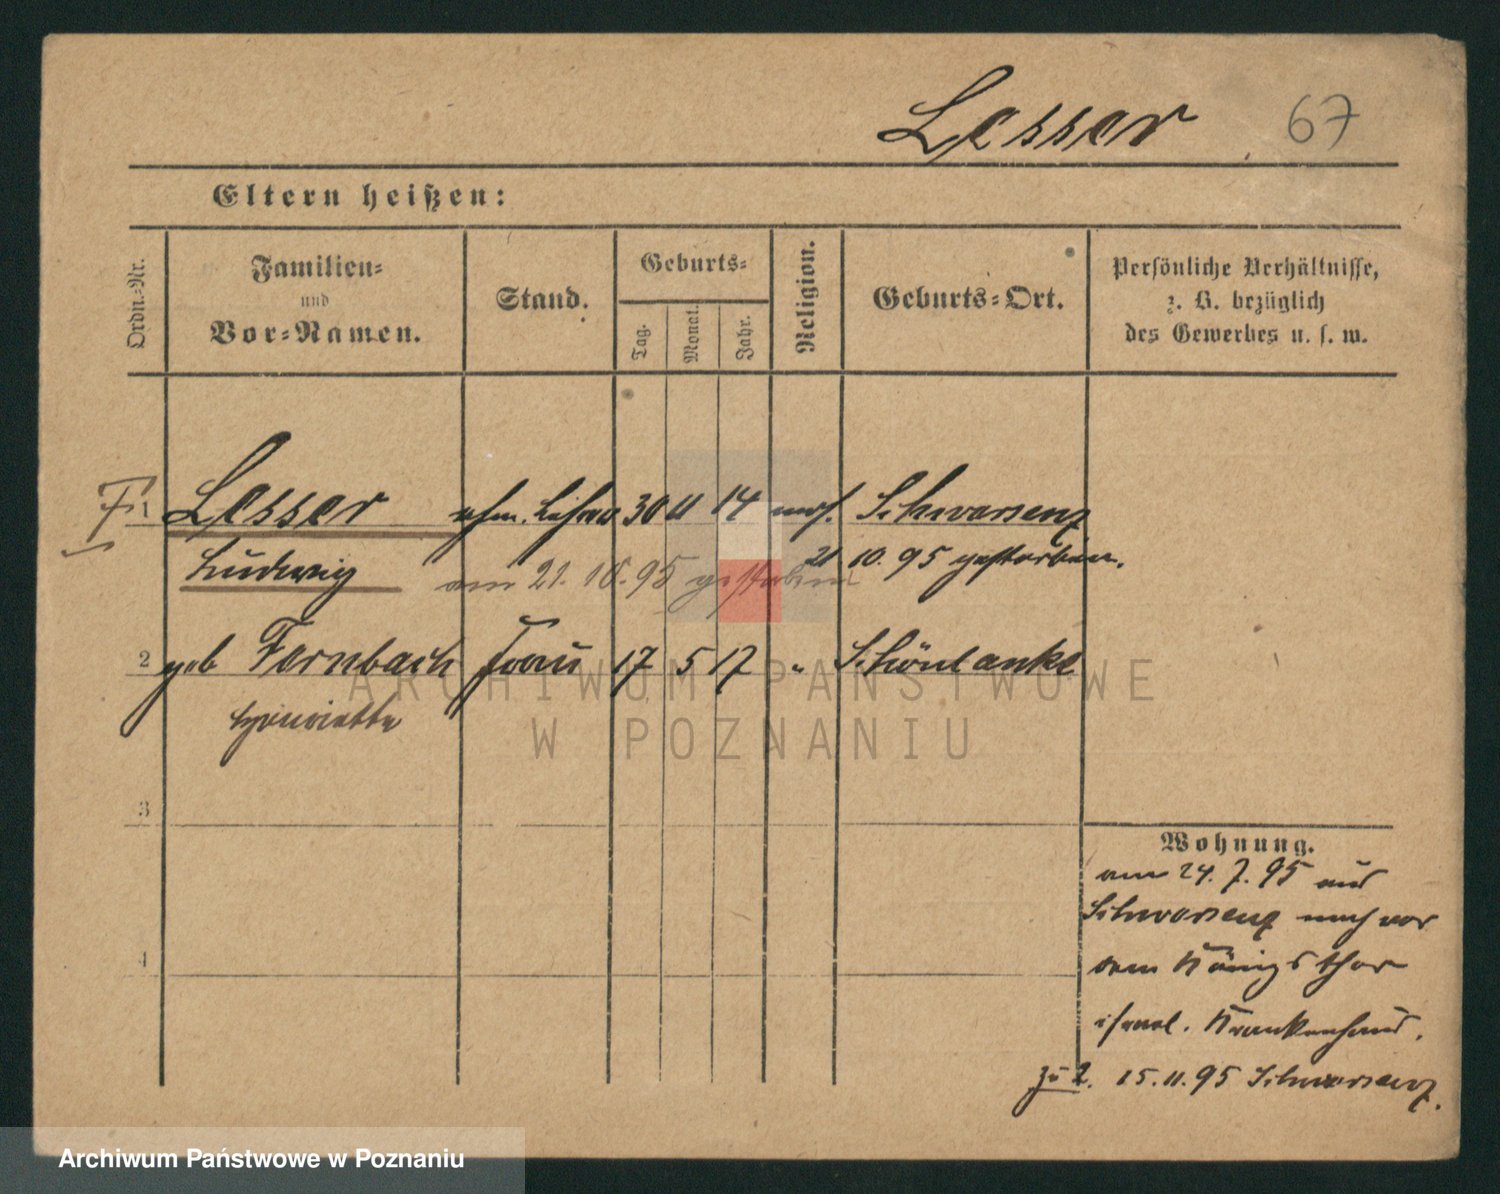 Lesser 67
Eltern heißen:
Ordn.-Nr.
Familien- und Vor-Namen.
Stand.
Geburts-
Tag.
Monat.
Jahr.
Religion.
Geburts-Ort.
Persönliche Verhältnisse,
z. B. bezüglich
des Gewerbes u. s. w.
1 Lesser ehm. Lehrer 30 11 14 mos. Schwersenz
Ludwig am 21. 10. 95 gestorben 21 10. 95 gestorben.
2 geb Fernbach Frau 17 5 17 " Schönlanke
Henriette
3
4
Wohnung.
am 24. 7. 95 aus
Schwersenz nach vor
dem Königsthor
israel. Krankenhaus.
zu 2. 15. 11. 95 Schwersenz.
ARCHIWUM PAŃSTWOWE
W POZNANIU
Archiwum Państwowe w Poznaniu